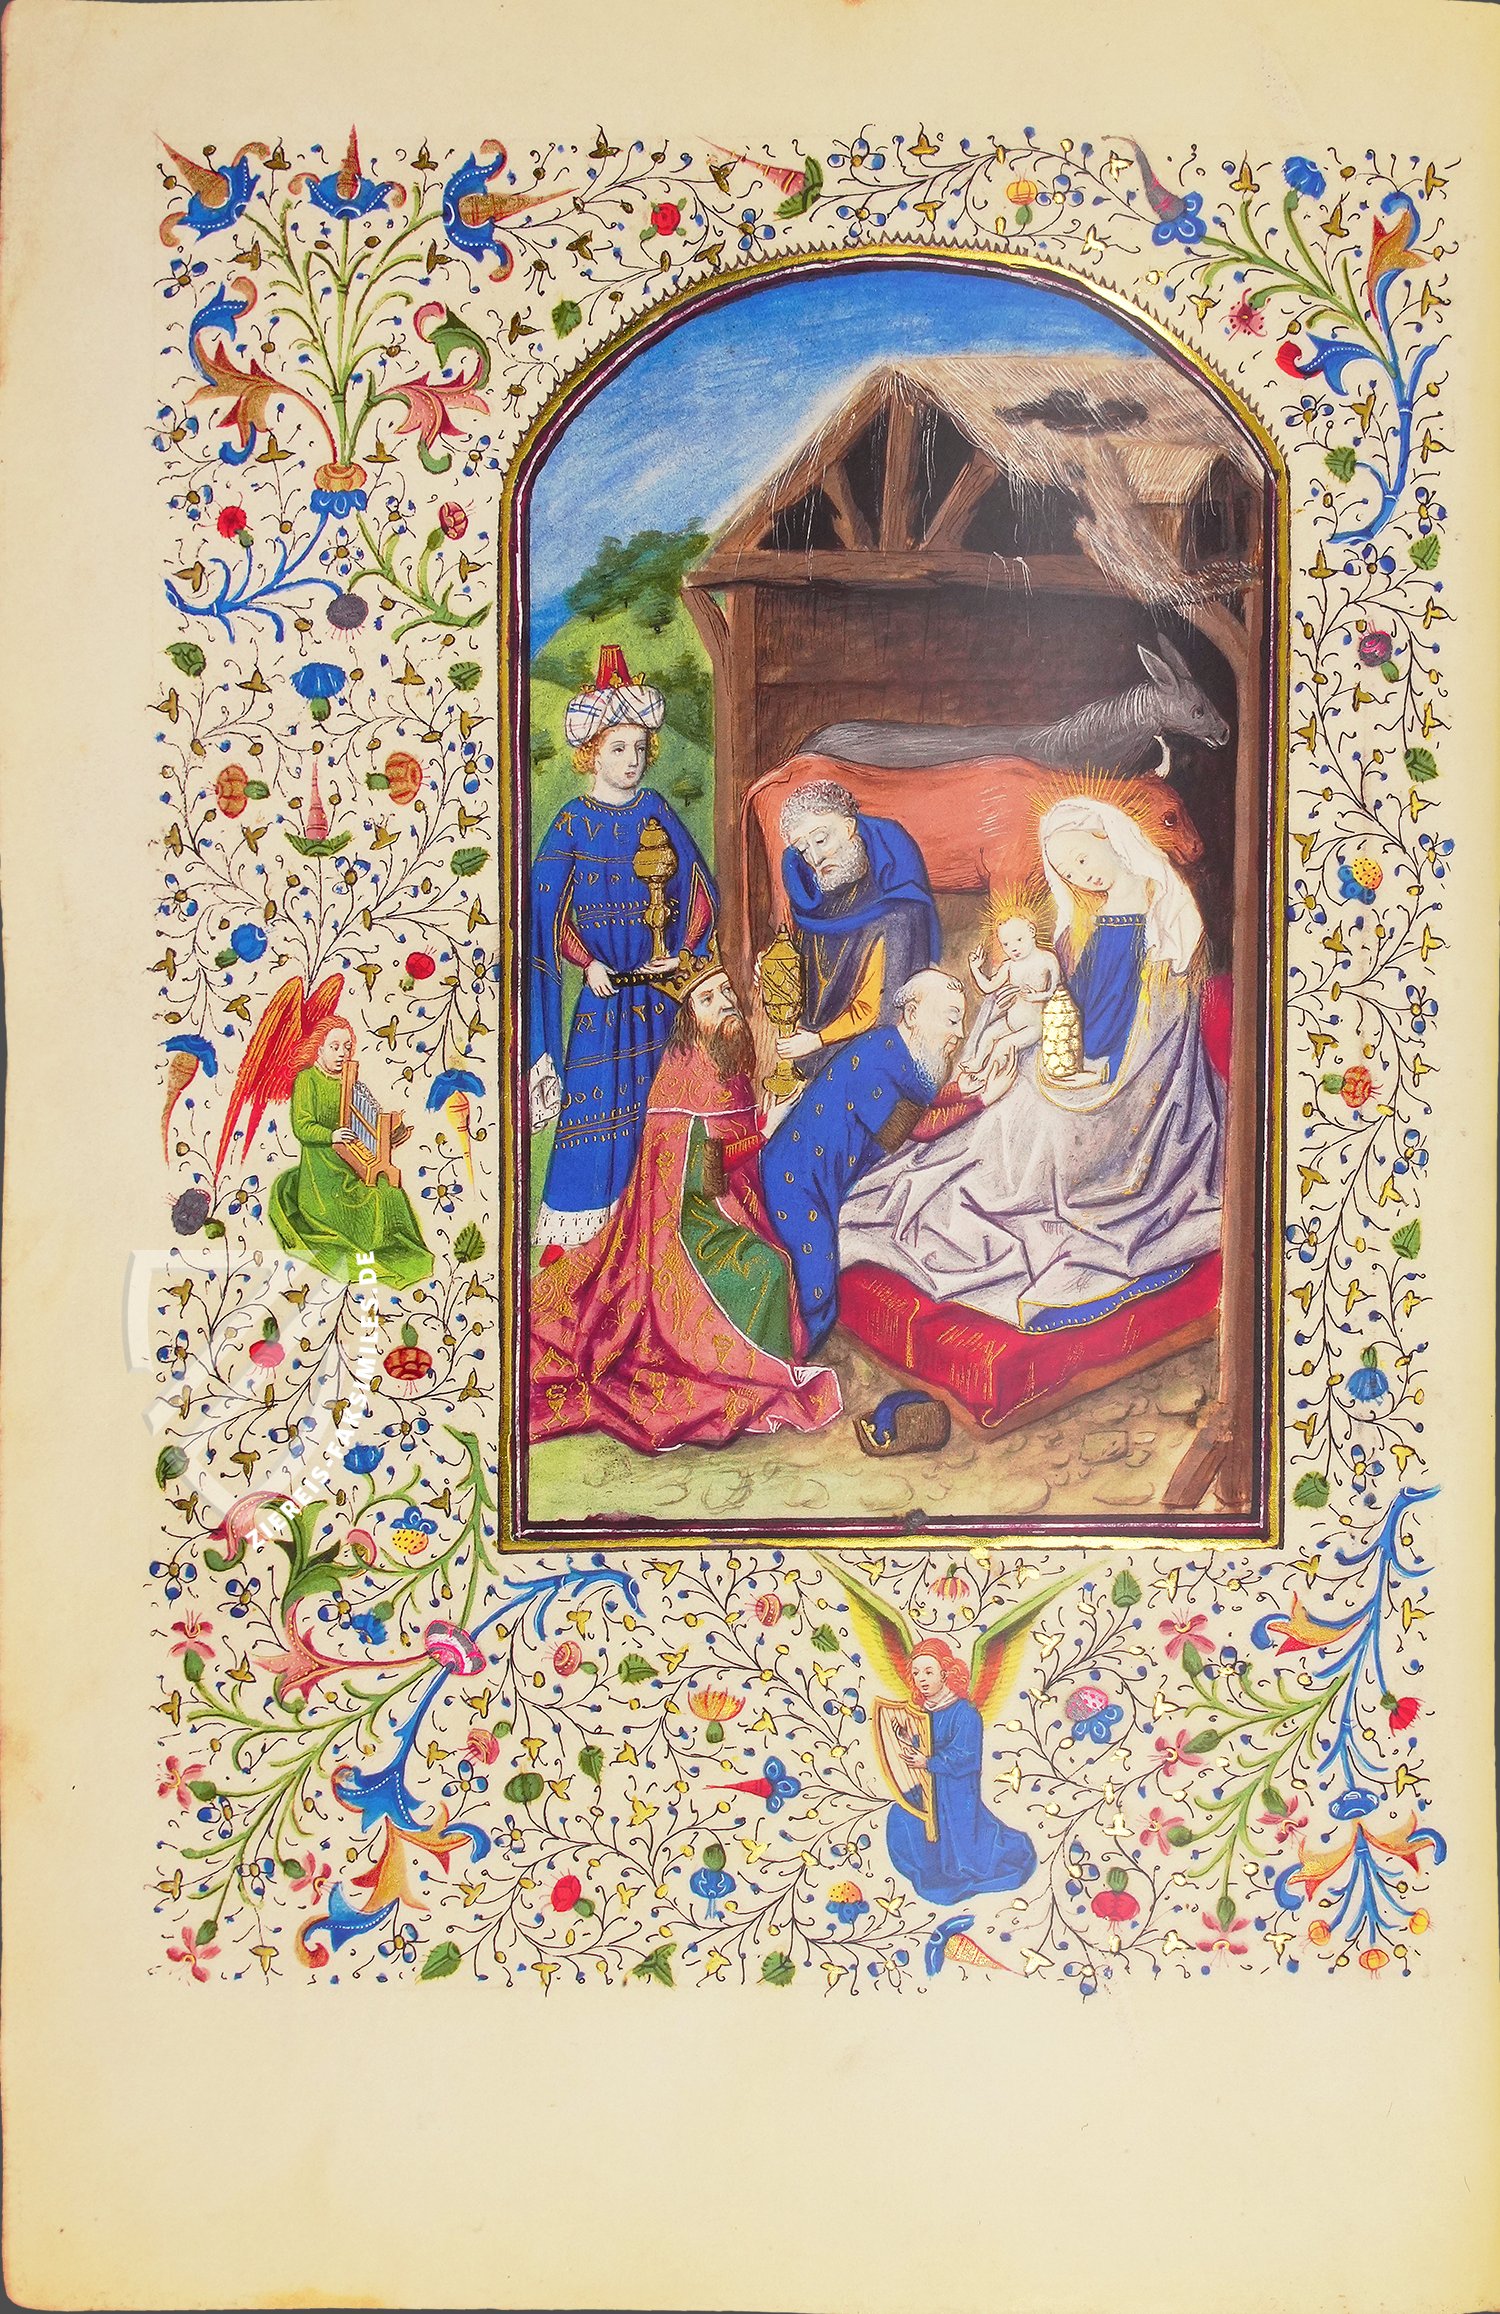 AVE
ZIEREIS-FAKSIMILES.DE